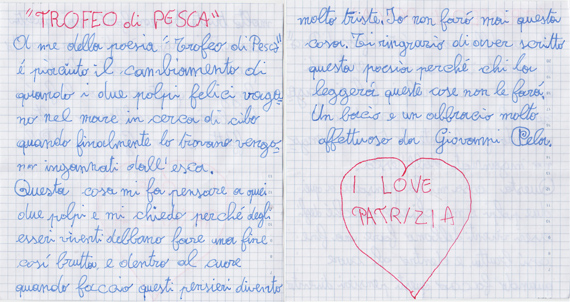 "TROFEO di PESCA"
A me della poesia "Trofeo di Pesca"
é piaciuto il cambiamento di
quando i due polpi felici vaga
no nel mare in cerca di cibo
quando finalmente lo trovano vengo
no ingannati dall'esca.
Questa cosa mi fa pensare a quei
due polpi e mi chiedo perché degli
esseri viventi debbano fare una fine
cosí brutta e dentro al cuore
quando faccio questi pensieri divento
molto triste. Io non faró mai questa
cosa. Ti ringrazio di aver scritto
questa poesia perché chi la
leggerá queste cose non le fará.
Un bacio e un abbraccio molto
affettuoso da Giovanni
I LOVE
PATRIZIA